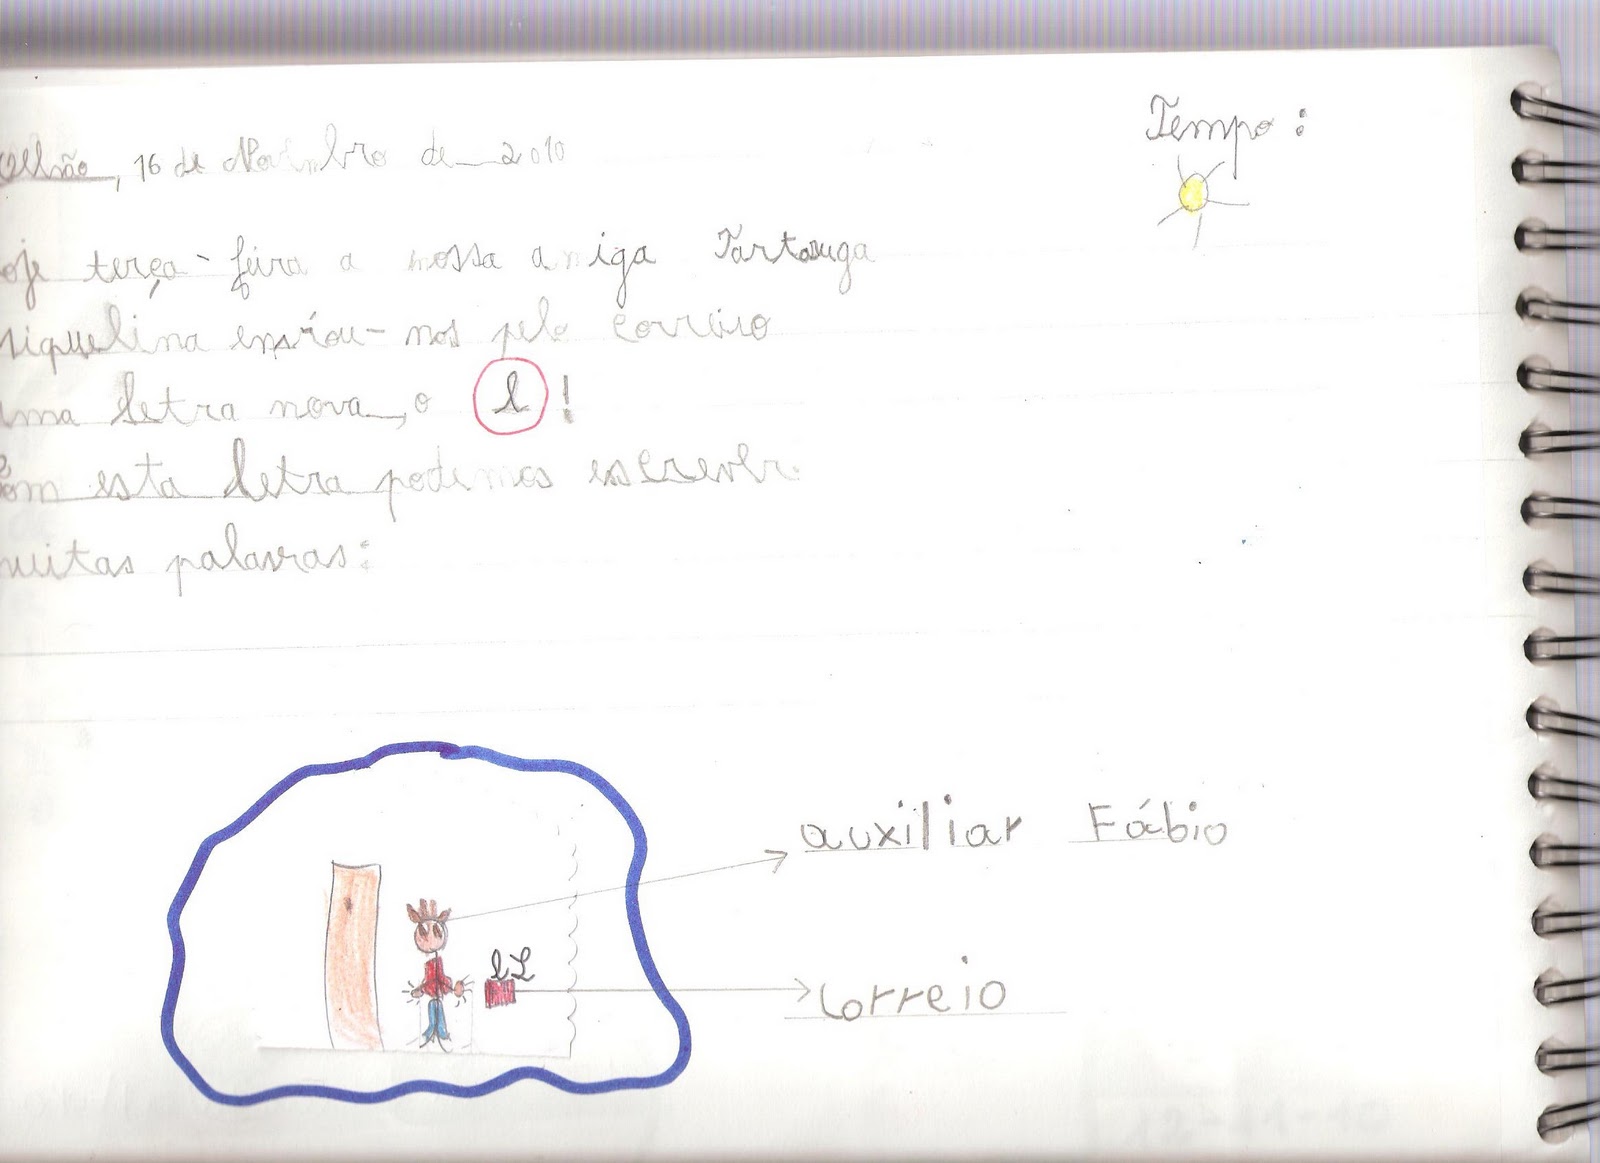 Tempo:
Olhão, 16 de Novembro de 2010
oje terça-feira a nossa amiga Tartaruga
riquelina enviou-nos pelo correio
uma letra nova, o l!
Com esta letra podemos escrever
muitas palavras:
auxiliar Fábio
l L
Correio